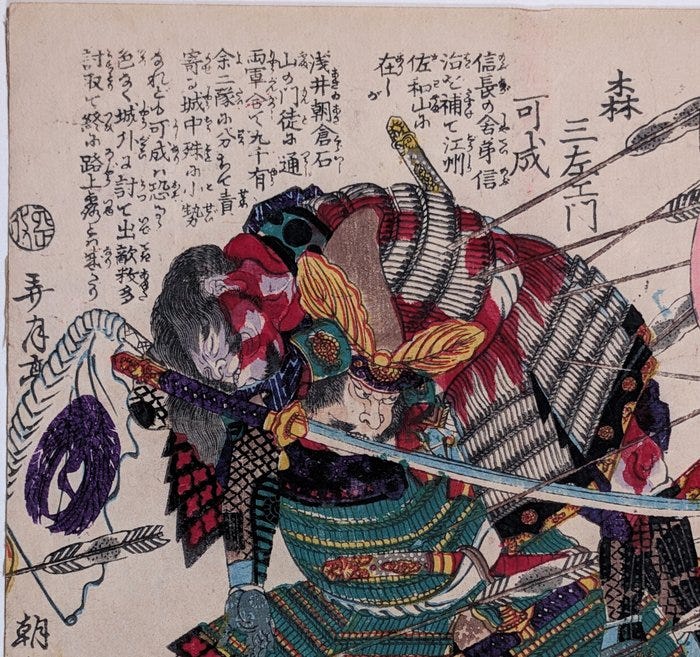 森
三左エ門
可成
信長の舎弟信
治を補て江州
佐和山に
在しが
浅井朝倉石
山の門徒に通
両軍合て九千有
余二隊に分ちて責
寄る城中殊に小勢
なれども可成は恐るゝ
色なく城外に討て出敵数多
討取て終に路上
弄月亭
朝